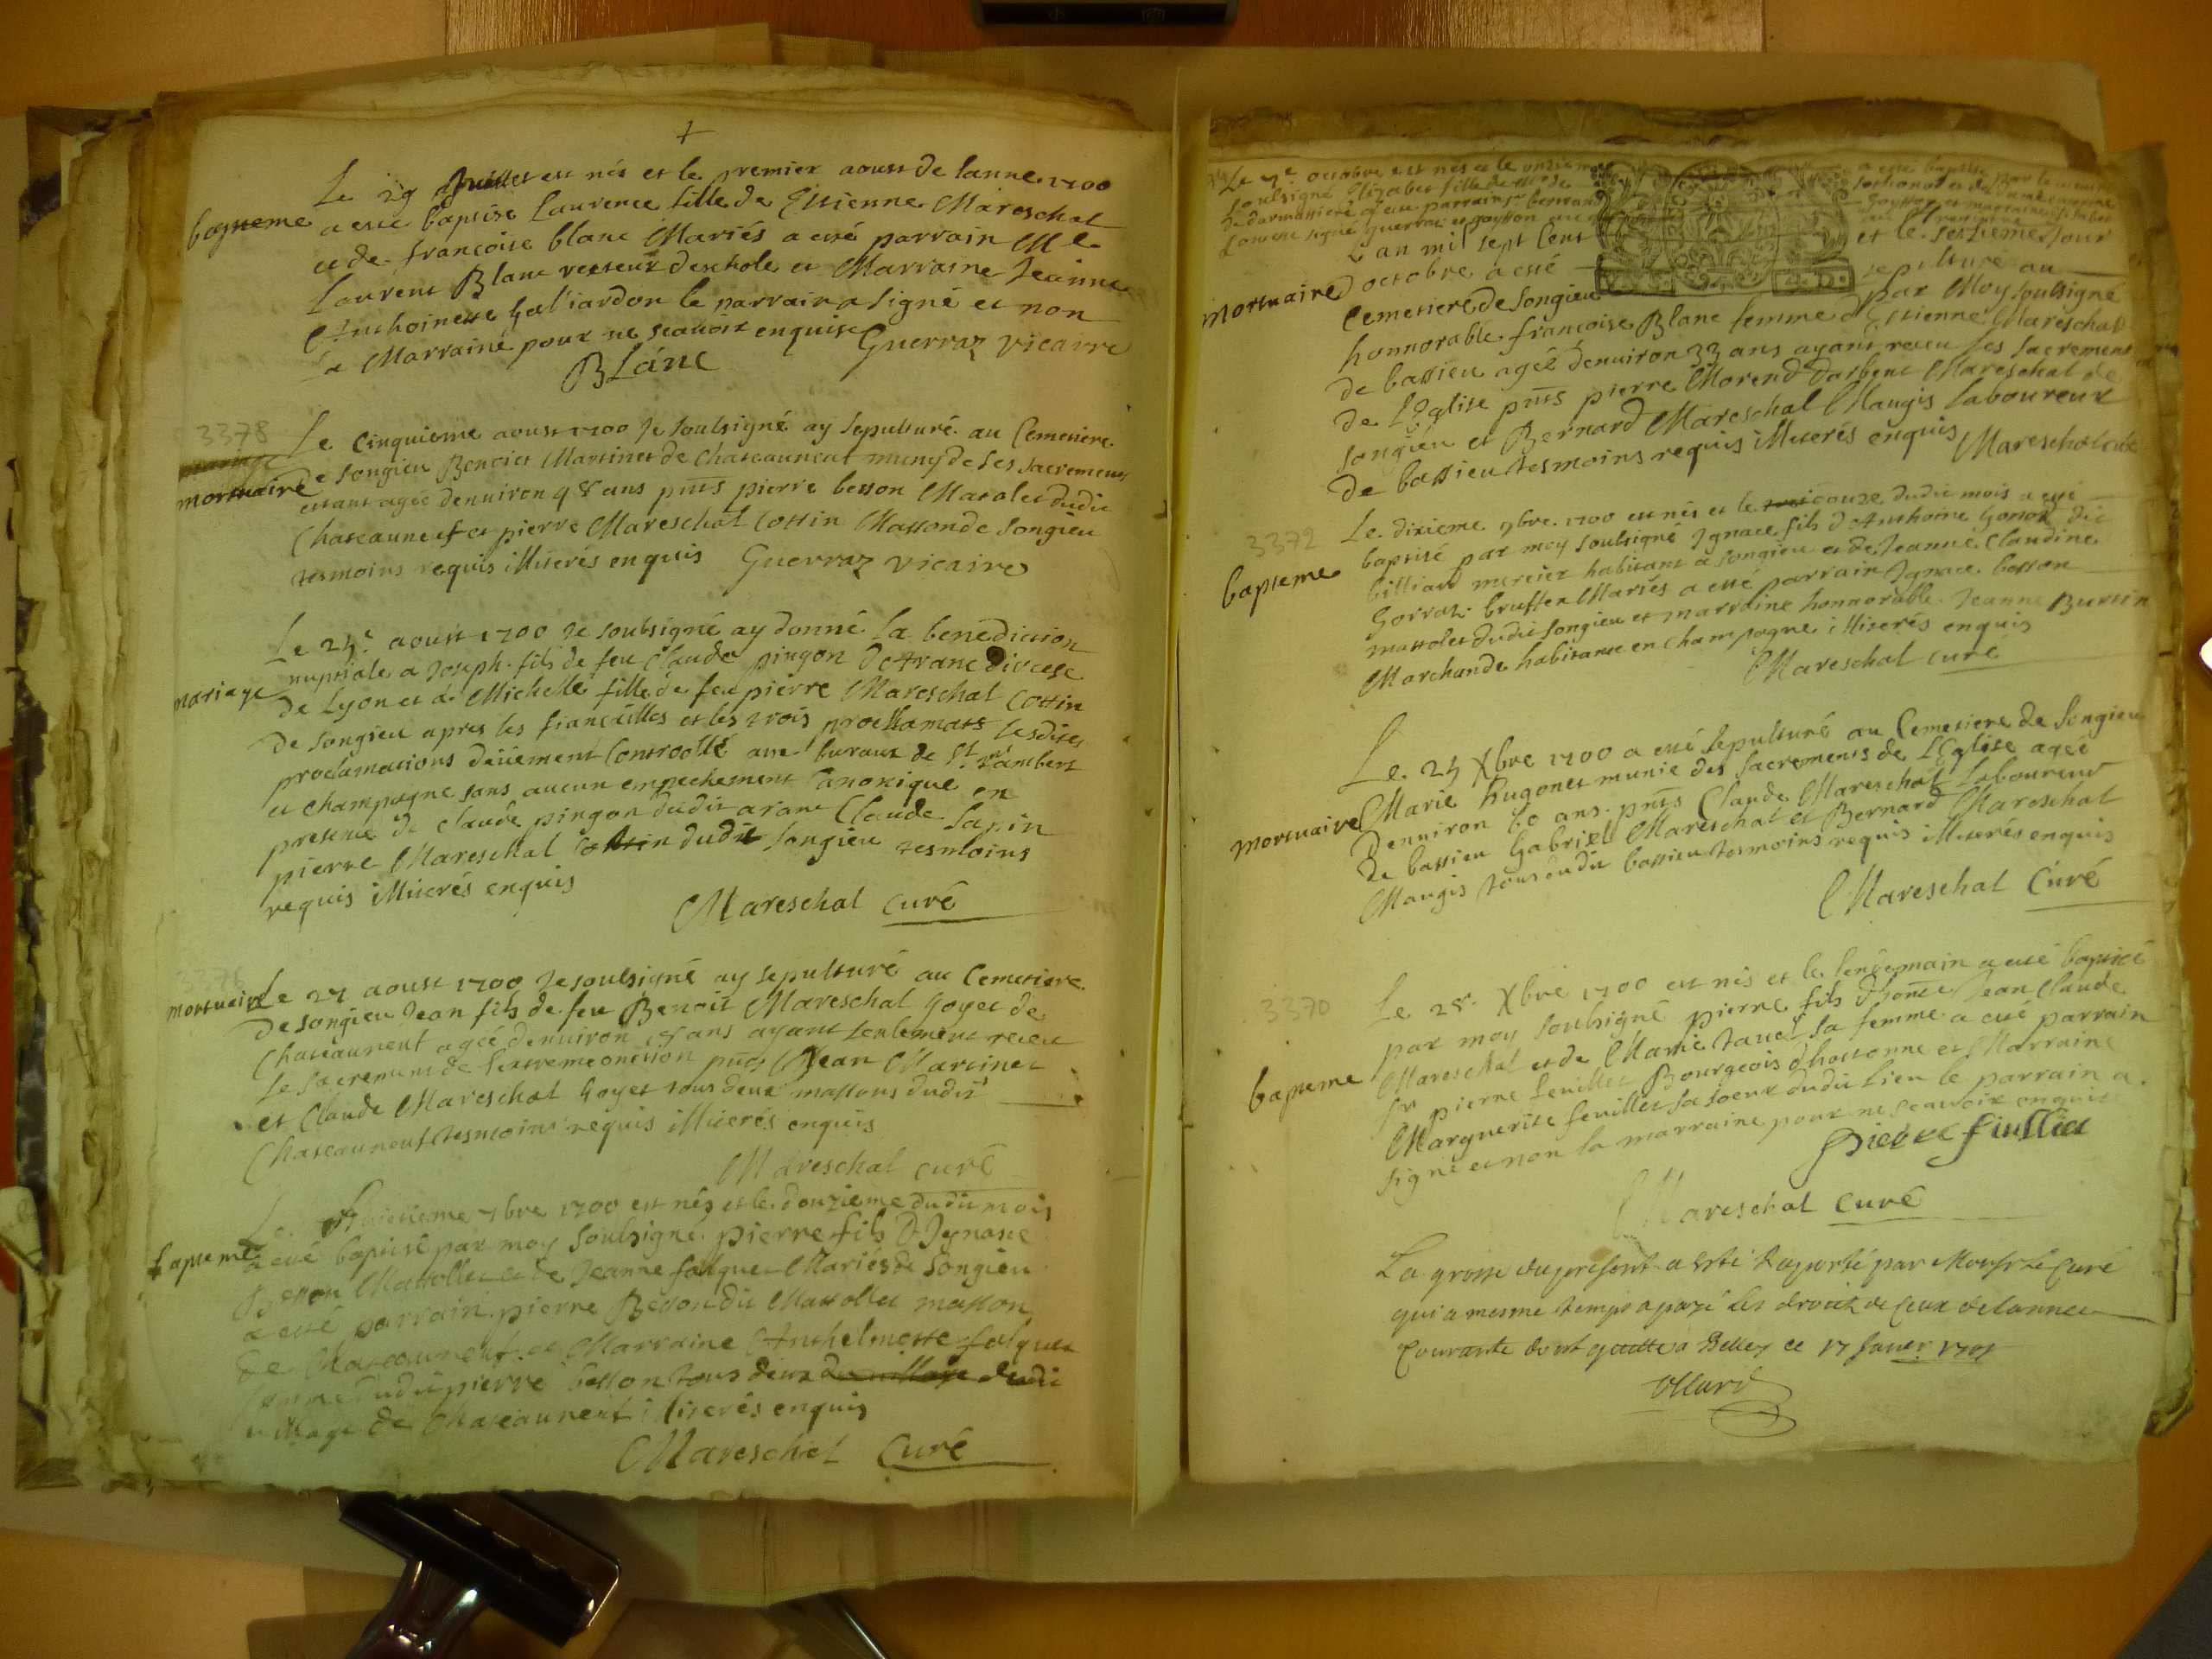 +
Le 29 Juillet est nés et le premier aoust de lanne 1700
bapteme a esté baptise Laurence fille de Estienne Mareschal
et de françoise blanc Mariés a esté parrain Me
Laurent Blanc recteur deschole et Marraine Jeanne
Anthoinette Galiardon le parrain a signé et non
la Marraine pour ne scauoir enquise Guerraz vicaire
BLanc
3378
Le Cinquieme aoust 1700 Je soubsigné ay sepulturé au Cemetiere
mariage
mortuaire de Songieu Benoict Martinet de Chateauneuf muny de ses sacremens
estant agée denuiron 48 ans pnts pierre besson Matolet dudit
Chateauneuf et pierre Mareschal Cottin Masson de Songieu
tesmoins requis illiterés enquis Guerraz vicaire
Le 25e aoust 1700 Je soubsigné ay donné la benediction
mariage nuptiale a Joseph fils de feu Claude pingon de Arane diocese
de Lyon et a Michelle fille de feu pierre Mareschal Cottin
de songieu apres les fiancailles et les trois proclamats lesdites
proclamations deüement Controollé aux buraux de St. rambert
et champagne sans aucun empechement Canonique en
presence de Claude pingon dudit arane Claude Sapin
pierre Mareschal Cottin dudit Songieu tesmoins
requis illiterés enquis
Mareschal Curé
3376
mortuaire Le 27 aoust 1700 Je soubsigné ay sepulturé au Cemetiere
de songieu Jean fils de feu Benoit Mareschal Goyet de
Chateauneuf agée denuiron ans ayant seulement receu
le sacrement de lextremeonction pnts Jean Martinet
et Claude Mareschal Goyet tous deux massons dudit
Chateauneuf tesmoins requis illiterés enquis
Mareschal curé
Le huictieme 7bre 1700 est nés et le douzieme dudit mois
bapteme a esté baptisé par moy soubsigné pierre fils D Ignasse
Besson Mattollet et de Jeanne falquet Mariés de Songieu
a esté parrain pierre Besson dit Mattollet masson
de Chateauneuf et Marraine Anthelmette falquet
femme dudit pierre besson tous deux du village dudit
village de Chateauneuf illiterés enquis
Mareschal Curé
Le 7e octobre est nés et le onzieme a esté baptisé par le vicaire
soubsigné Elizabet fille de
parrain bernard
signé guerraz et goysson
L an mil sept Cent et le seizieme Jour
mortuaire D octobre a esté sepulturé au
Cemetiere de Songieu par Moy soubsigné
honnorable françoise Blanc femme d Estienne Mareschal
de bassieu agée denuiron 33 ans ayant receu les sacremens
de l Eglise pnts pierre Morend Darbent Mareschal de
songieu et Bernard Mareschal Maugis laboureux
de bassieu tesmoins requis illiterés enquis Mareschal curé
3372
Le dixieme 9bre 1700 est nés et le douze dudit mois a esté
bapteme baptisé par moy soubsigné Ignace fils d Anthoine Gonod dit
billiard mercier habitant a songieu et de Jeanne Claudine
Gorraz brustex Mariés a esté parrain Ignace besson
mattolet dudit songieu et marraine honnorable Jeanne Burtin
Marchande habitante en Champagne illiterés enquis
Mareschal curé
Le 25 Xbre 1700 a esté sepulturé au Cemetiere de Songieu
mortuaire Marie hugonet munie des sacrements de L Eglise agée
Denuiron 60 ans pnts Claude Mareschal Laboureur
de bassieu Gabriel Mareschal et Bernard Mareschal
Maugis tous dudit bassieu tesmoins requis illiterés enquis
Mareschal Curé
3370
Le 28e Xbre 1700 est nés et le lendemain a esté baptisé
par moy soubsigné pierre fils d honte Jean Claude
bapteme Mareschal et de Marie tavel sa femme a esté parrain
sr pierre feuillet Bourgeois dhostonne et Marraine
Marguerite feuillet sa soeur dudit lieu le parrain a
signé et non la marraine pour ne scauoir enquise
pierre fuillet
Mareschal Curé
La grosse du present a esté raporté par Monsr le Curé
qui a mesme temps apayé les droits de ceux de lannee
Courante dont quitte a Belley ce 17 Janer 1701